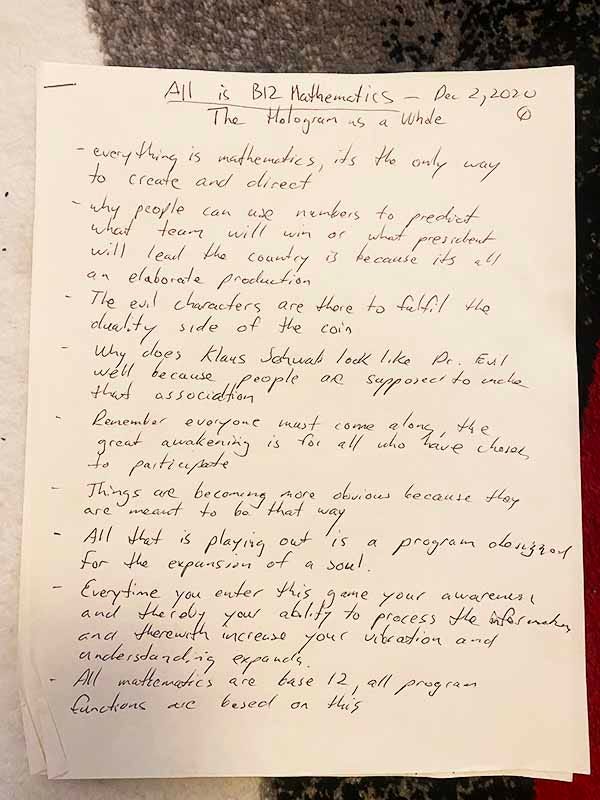 All is B12 Mathematics - Dec 2, 2020
The Hologram as a Whole
①
- everything is mathematics, its the only way
to create and direct
- why people can use numbers to predict
what team will win or what president
will lead the country is because its all
an elaborate production
- The evil characters are there to fulfil the
duality side of the coin
- Why does Klaus Schwab look like Dr. Evil
well because people are supposed to make
that association
- Remember everyone must come along, the
great awakening is for all who have chosen
to participate
- Things are becoming more obvious because they
are meant to be that way
- All that is playing out is a program designed
for the expansion of a soul.
- Everytime you enter this game your awareness
and thereby your ability to process the information
and therewith increase your vibration and
understanding expands.
- All mathematics are base 12, all program
functions are based on this